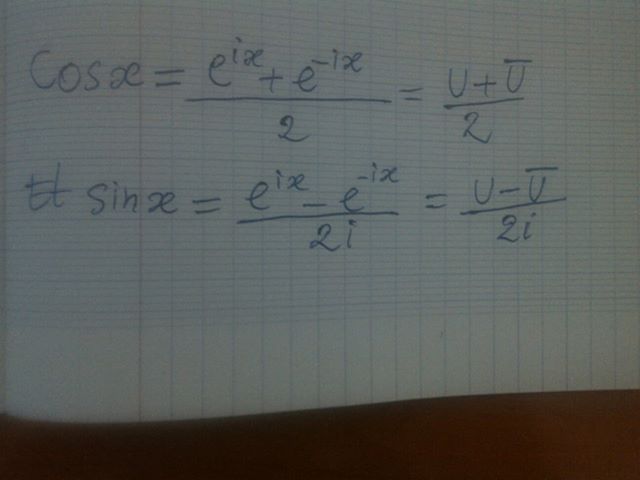 Cosx = (e^{ix} + e^{-ix})/2 = (U + U̅)/2
et sinx = (e^{ix} - e^{-ix})/2i = (U - U̅)/2i